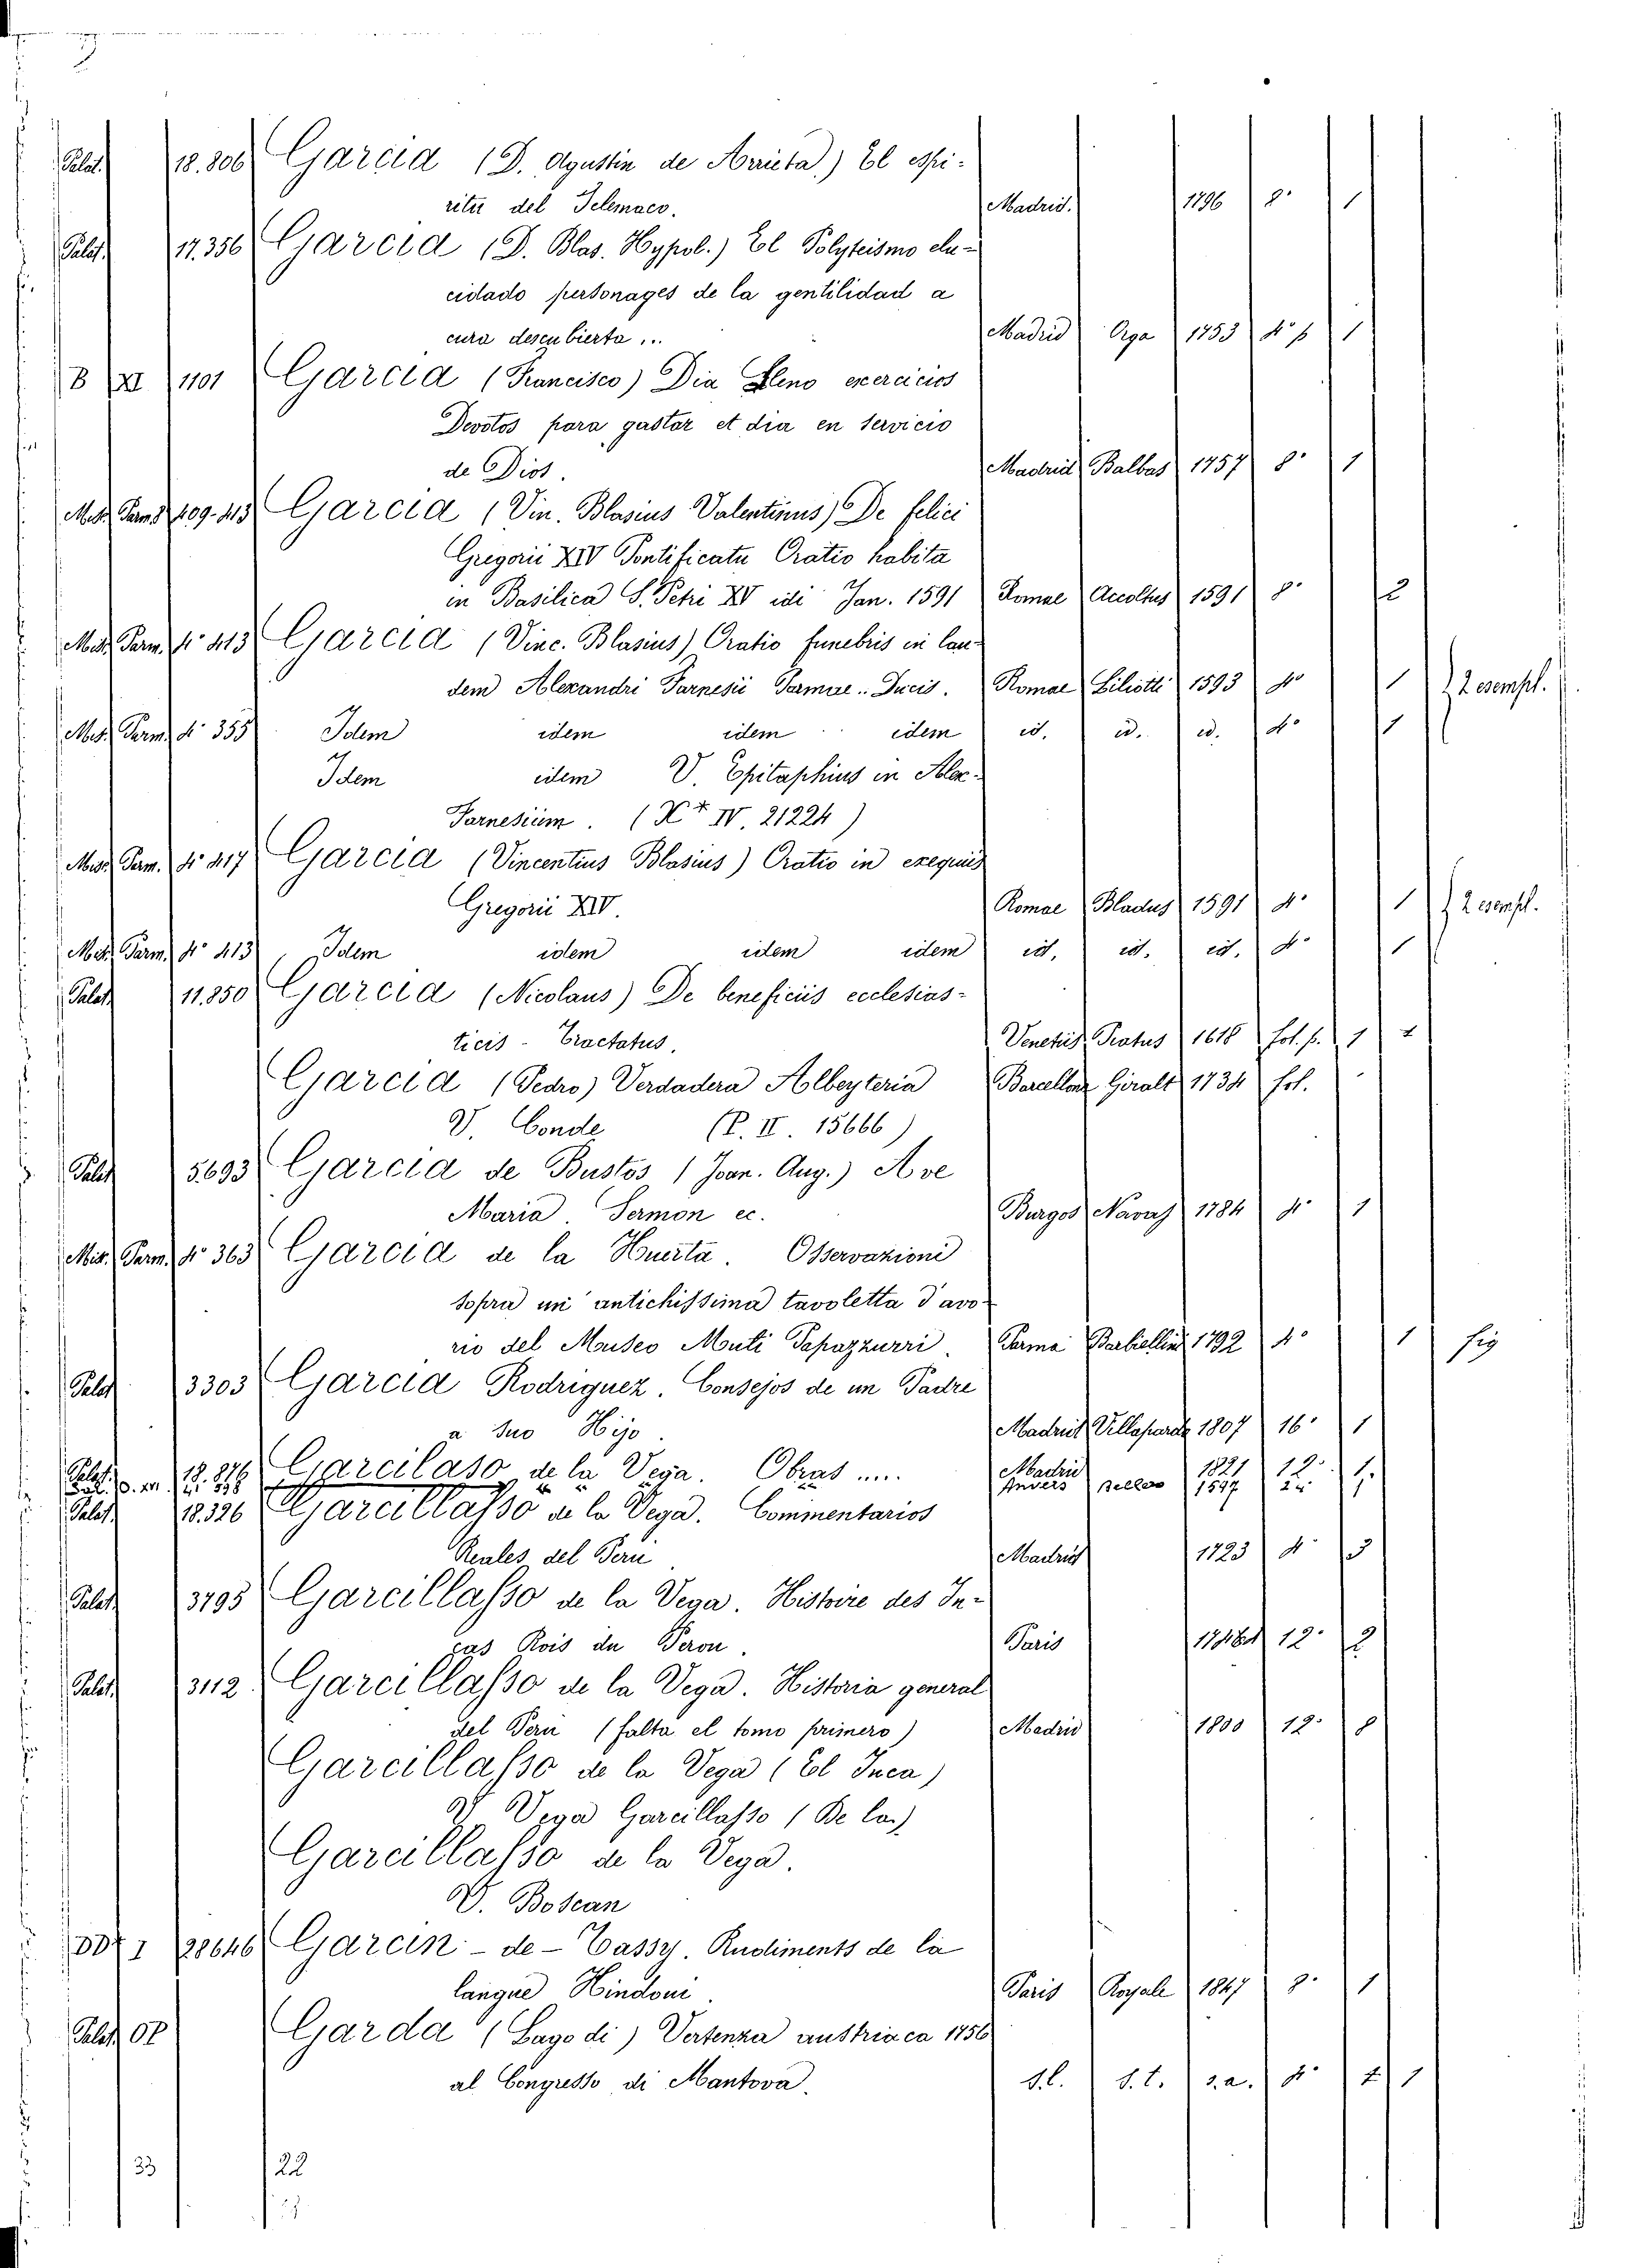 Palat. 18.806 Garcia (D. Agustin de Arrieta.) El espi-
ritu del Telemaco. Madrid. 1796 8° 1
Palat. 17.356 Garcia (D. Blas. Hypol.) El Polyteismo elu-
cidado personages de la gentilidad a
cura descubierta... Madrid Orga 1753 4° p 1
B XI 1101 Garcia (Francisco) Dia Lleno exercicios
Devotos para gastar et dia en servicio
de Dios. Madrid Balbas 1757 8° 1
Misc. Parm. 8° 109-413 Garcia (Vin. Blasius Valentinus) De felici
Gregorii XIV Pontificatu Oratio habita
in Basilica S. Petri XV idi Jan. 1591 Romae Accoltus 1591 8° 2
Misc. Parm. 4° 413 Garcia (Vinc. Blasius) Oratio funebris in lau-
dem Alexandri Farnesii Parmae.. Ducis. Romae Liliotti 1593 4° 1 } 2 esempl.
Misc. Parm. 4° 355 Idem idem idem idem id. id. id. 4° 1
Idem idem V. Epitaphius in Alex.
Farnesium. (Xx IV. 21224)
Misc. Parm. 4° 417 Garcia (Vincentius Blasius) Oratio in exequiis
Gregorii XIV. Romae Bladus 1591 4° 1 } 2 esempl.
Misc. Parm. 4° 413 Idem idem idem idem id. id. id. 4° 1
Palat. 11.850 Garcia (Nicolaus) De beneficiis ecclesias-
ticis - Tractatus. Venetiis Pratus 1618 fol. p. 1
Garcia (Pedro) Verdadera Albeyteria Barcellona Giralt 1734 fol.
V. Conde (P. II. 15666)
Palat. 5693 Garcia de Bustos (Joan. Aug.) Ave
Maria. Sermon ec. Burgos Navas 1784 4° 1
Misc. Parm. 4° 363 Garcia de la Huerta. Osservazioni
sopra un' antichissima tavoletta d'avo-
rio del Museo Muti Papazzurri. Parma Barbiellini 1792 4° 1 fig
Palat. 3303 Garcia Rodriguez. Consejos de un Padre
a suo Hijo. Madrid Villaparde 1807 16° 1
Palat. 18.876 Garcilaso de la Vega. Obras .... Madrid 1821 12° 1.
Anvers 1597
Palat. 18.326 Garcillasso de la Vega. Commentarios
Reales del Peru Madrid 1723 4° 3
Palat. 3795 Garcillasso de la Vega. Histoire des In-
cas Rois du Perou. Paris 12° 2
Palat. 3112 Garcillasso de la Vega. Historia general
del Peru (falta el tomo primero) Madrid 1800 12° 8
Garcillasso de la Vega (El Inca)
V. Vega Garcillasso (De la)
Garcillasso de la Vega.
V. Boscan
DD I 28646 Garcin - de - Tassy. Rudiments de la
langue Hindoui. Paris Royale 1847 8° 1
Palat. Garda (Lago di) Vertenza austriaca 1756
al Congresso di Mantova. s.l. s.t. s.a. 4° 1
33 22